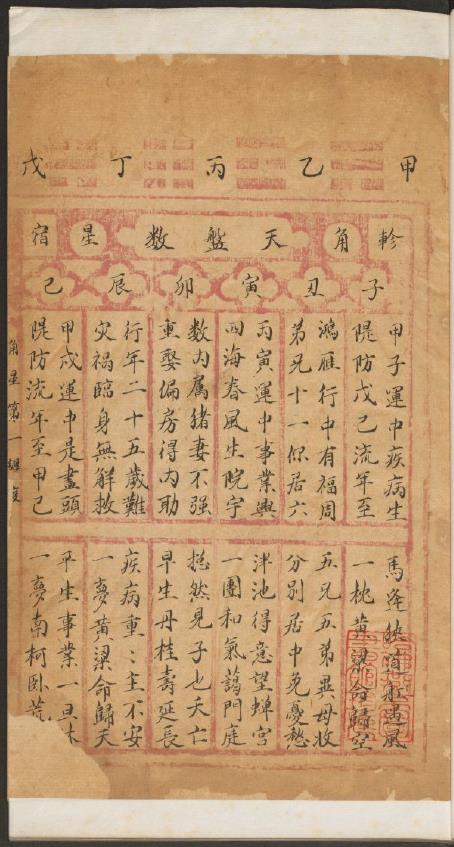 甲乙丙丁戊
軫角天盤數星宿
子丑寅卯辰巳
甲子運中疾病生
隄防戊己流年至
鴻雁行中有福周
弟兄十一你居六
丙寅運中事業興
四海春風生院宇
數內属猪妻不强
重娶偏房得內助
行年二十五歲難
灾禍臨身無解救
甲戌運中是盡頭
隄防流年至甲己
馬逢狹道船遇風
一枕黃粱命歸空
五兄五弟異母收
分別居中免憂愁
泮池得意望蟬宮
一團和氣藹門庭
摠然見子也夭亡
早生丹桂壽延長
疾病重〻主不安
一夢黃粱命歸天
平生事業一旦休
一夢南柯卧荒
角星第一